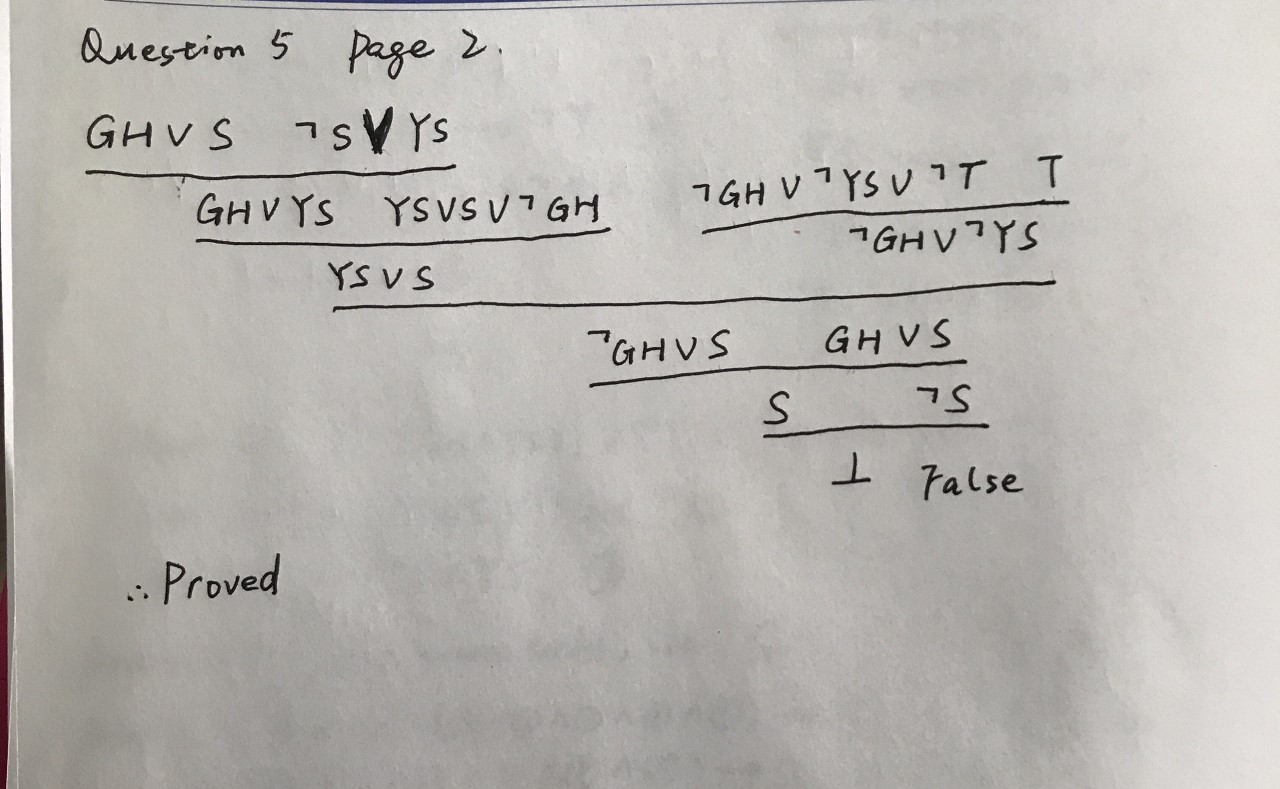 Question 5 page 2.
GH ∨ S ¬S ∨ YS
GH ∨ YS YS ∨ S ∨ ¬GH ¬GH ∨ ¬YS ∨ ¬T T
¬GH ∨ ¬YS
YS ∨ S
¬GH ∨ S GH ∨ S
S ¬S
⊥ False
∴ Proved